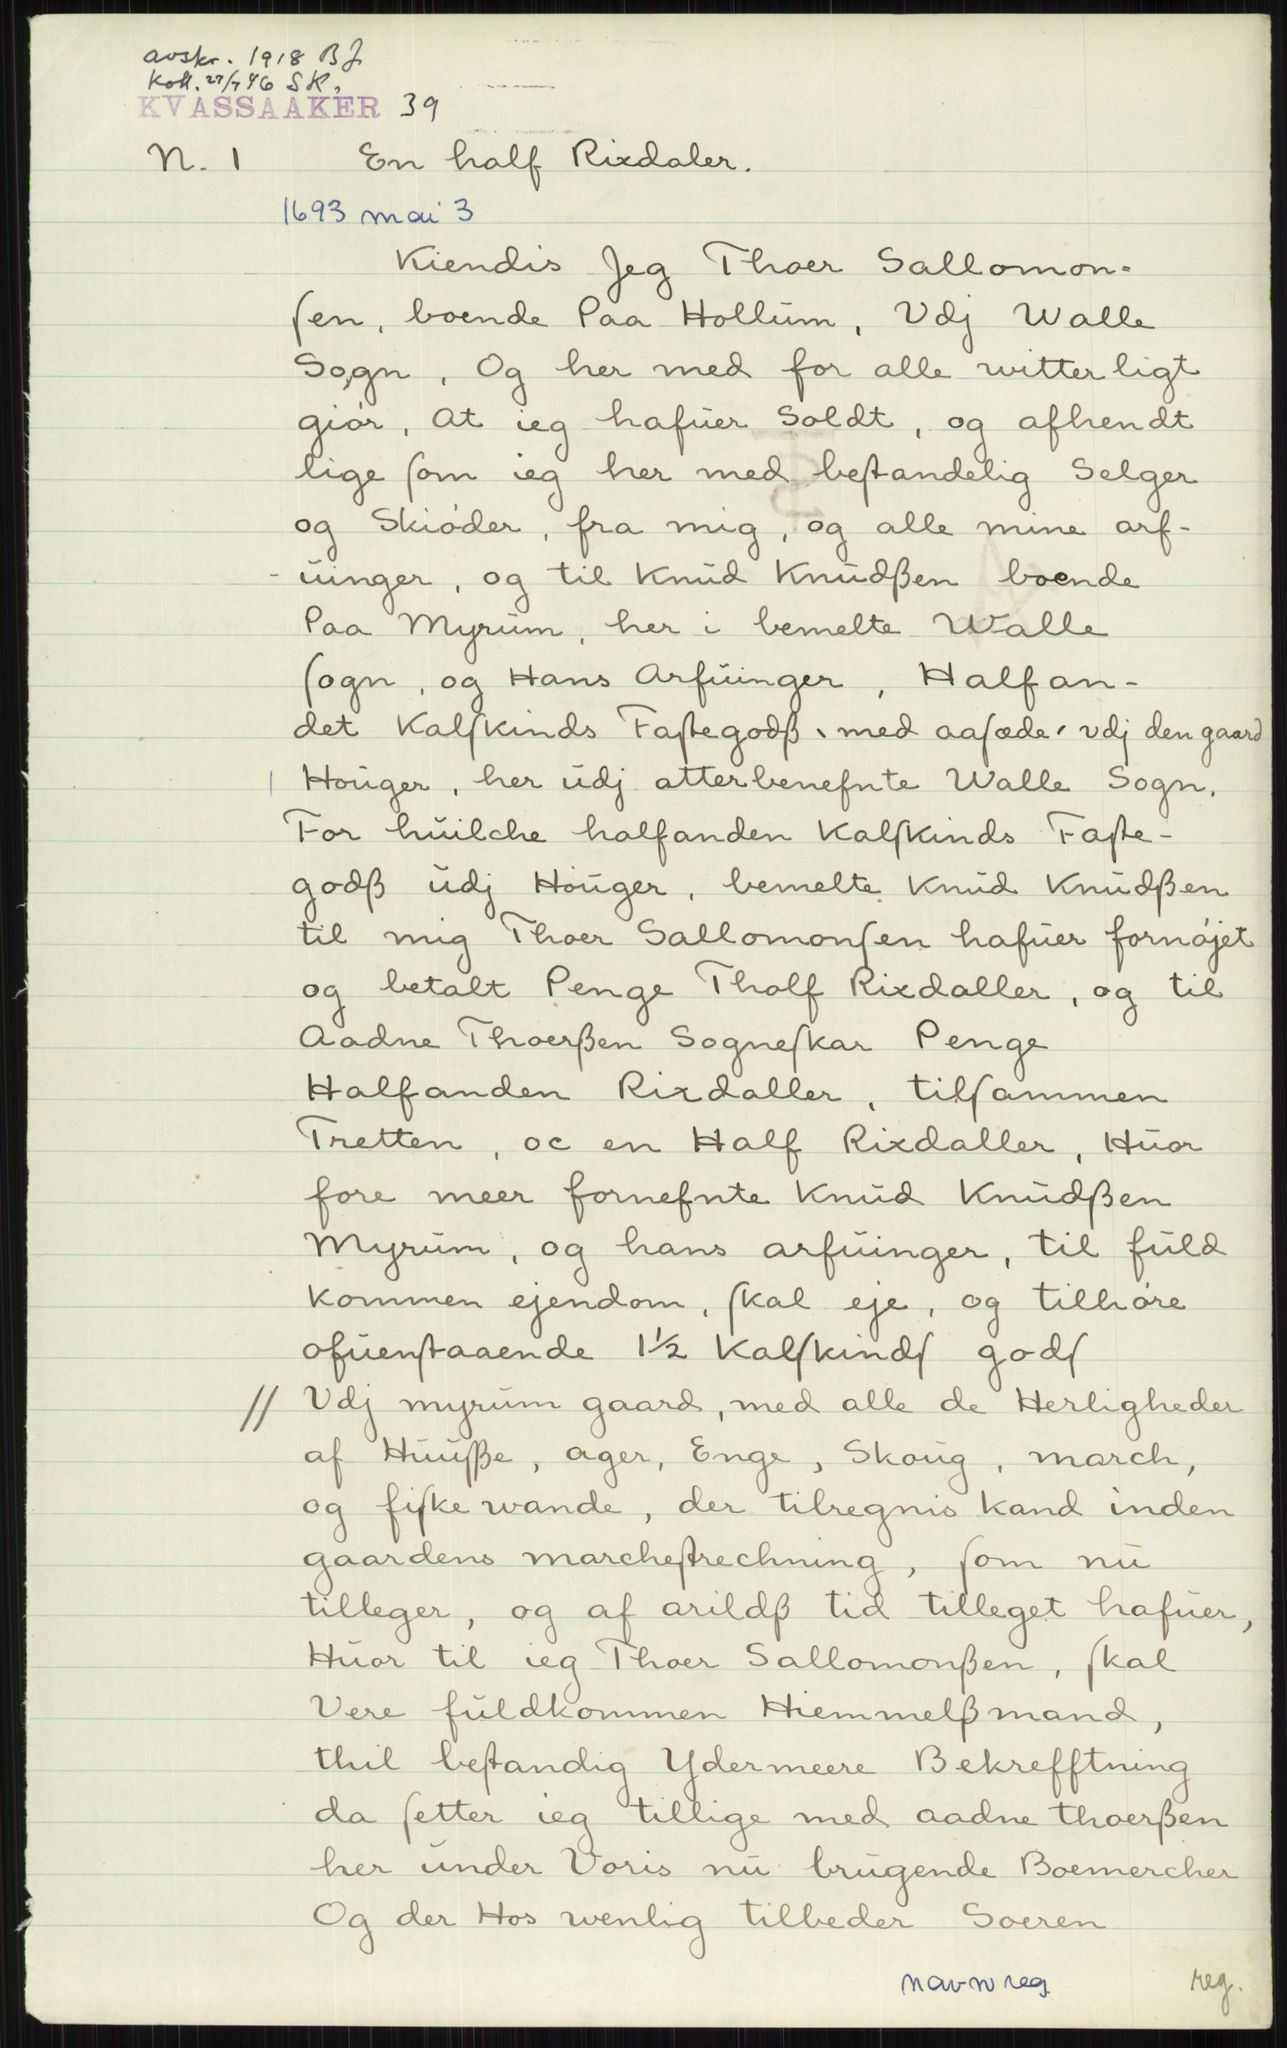 avskr. 1918 BJ
Koll. 27/7 46 SK.
KVASSAAKER 39
N. 1 En half Rixdaler.
1693 mai 3
Kiendis Jeg Thoer Sallomon-
ſen, boende Paa Hollüm, Vdj Walle
Sogn, Og her med for alle witterligt
giör, At ieg hafüer Soldt, og afhendt
lige ſom ieg her med beſtandelig Selger
og Skiöder, fra mig, og alle mine arf-
-üinger, og til Knüd Knüdßen boende
Paa Myrüm, her i bemelte Walle
ſogn, og Hans Arfüinger, Halfan-
det Kalſkinds Faſtegodß, med aaſæde, vdj den gaard
Houger, her üdj atterbenefnte Walle Sogn.
For hüilche halfanden Kalſkinds Faſte-
godß üdj Hoüger, bemelte Knüd Knüdßen
til mig Thoer Sallomonſen hafüer fornöjet
og betalt Penge Tholf Rixdaller, og til
Aadne Thoerßen Sogneſkar Penge
Halfanden Rixdaller, tilſammen
Tretten, oc en Half Rixdaller, Hüor
fore meer fornefnte Knüd Knüdßen
Myrüm, og hans arfüinger, til füld
kommen ejendom, ſkal eje, og tilhöre
ofüenſtaaende 1½ Kalſkindſ godſ
// Vdj myrüm gaard, med alle de Herligheder
af Huüße, ager, Enge, Skoüg, march,
og fiſke wande, der tilregnis kand inden
gaardens marcheſtrechning, ſom nü
tilleger, og af arildß tid tilleget hafüer,
Hüor til ieg Thoer Sallomonßen, ſkal
Vere füldkommen Hiemmelßmand,
thil beſtandig Ydermeere Bekrefftning
da ſetter ieg tillige med aadne thoerßen
her ünder Voris nü brügende Boemercher
Og der Hos wenlig tilbeder Soeren
navnreg reg.